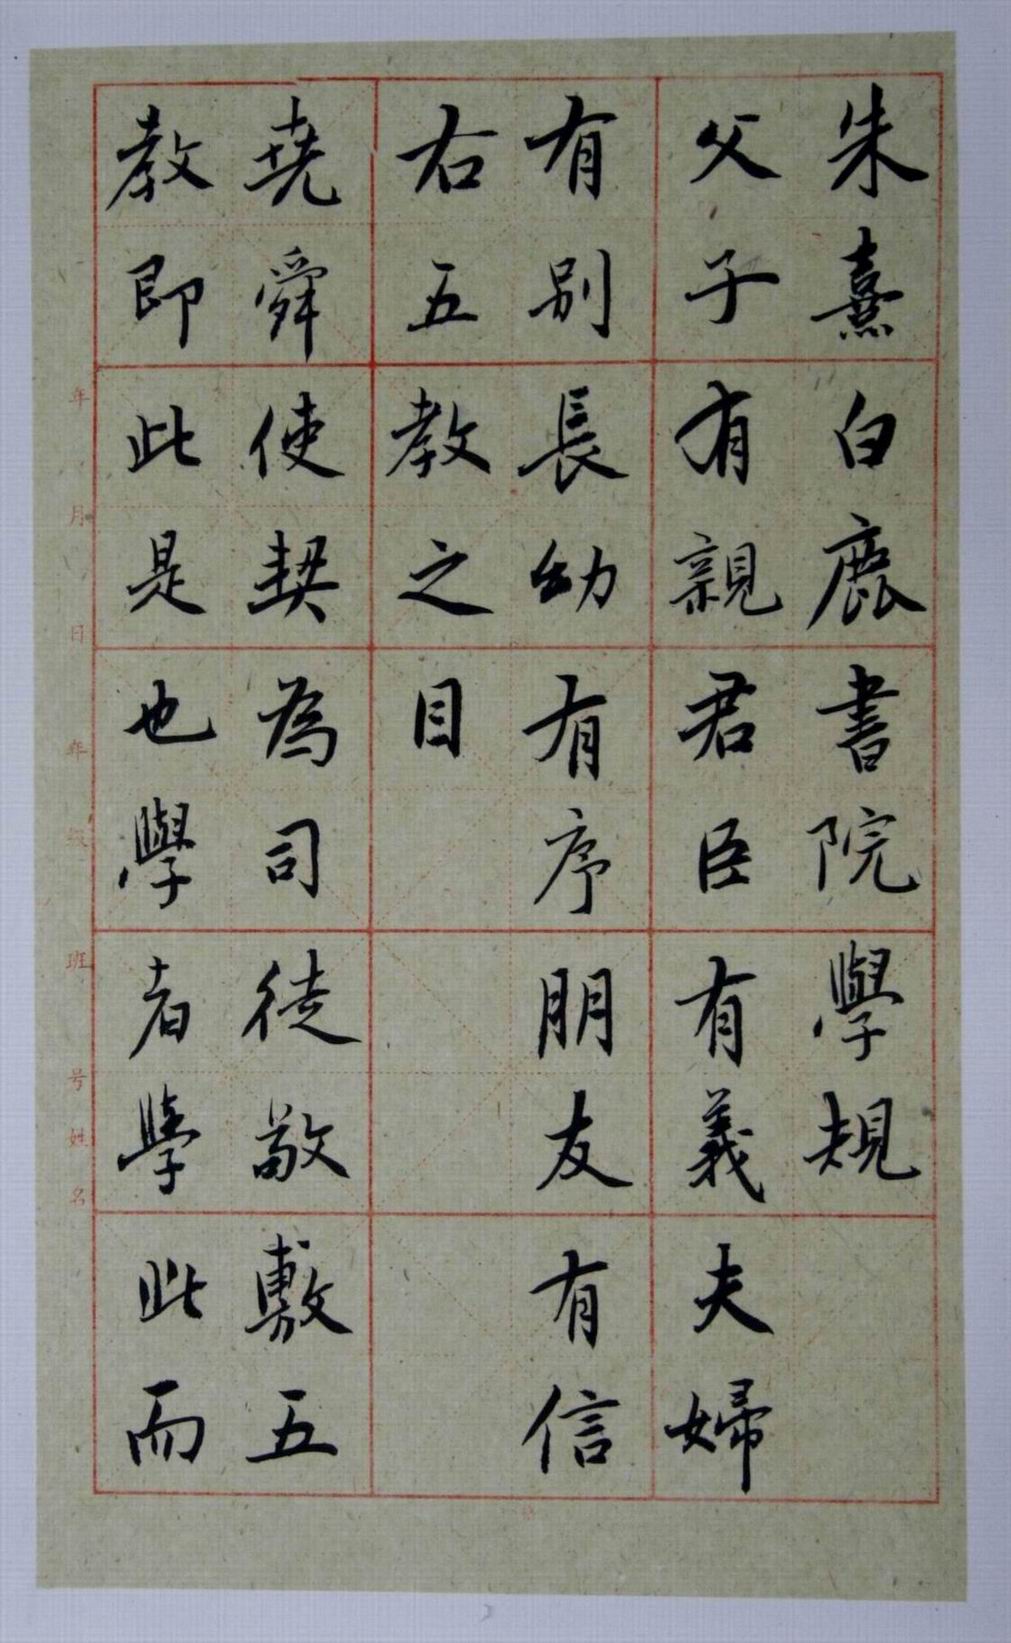 朱熹白鹿書院學規
父子有親君臣有義夫婦
有别長幼有序朋友有信
右五教之目
堯舜使契為司徒敬敷五
教即此是也學者學此而
年
月
日
年
级
班
号
姓
名